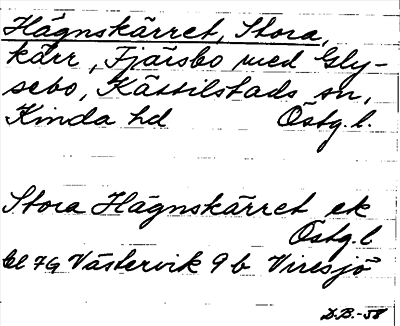 Hägnskärret, Stora,
kärr, Fjärsbo med Gly-
sebo, Kättilstads sn,
Kinda hd Östg.l.
Stora Hägnskärret ek
Östg.l
bl 7G Västervik 9 b Viresjö
D.B.-58